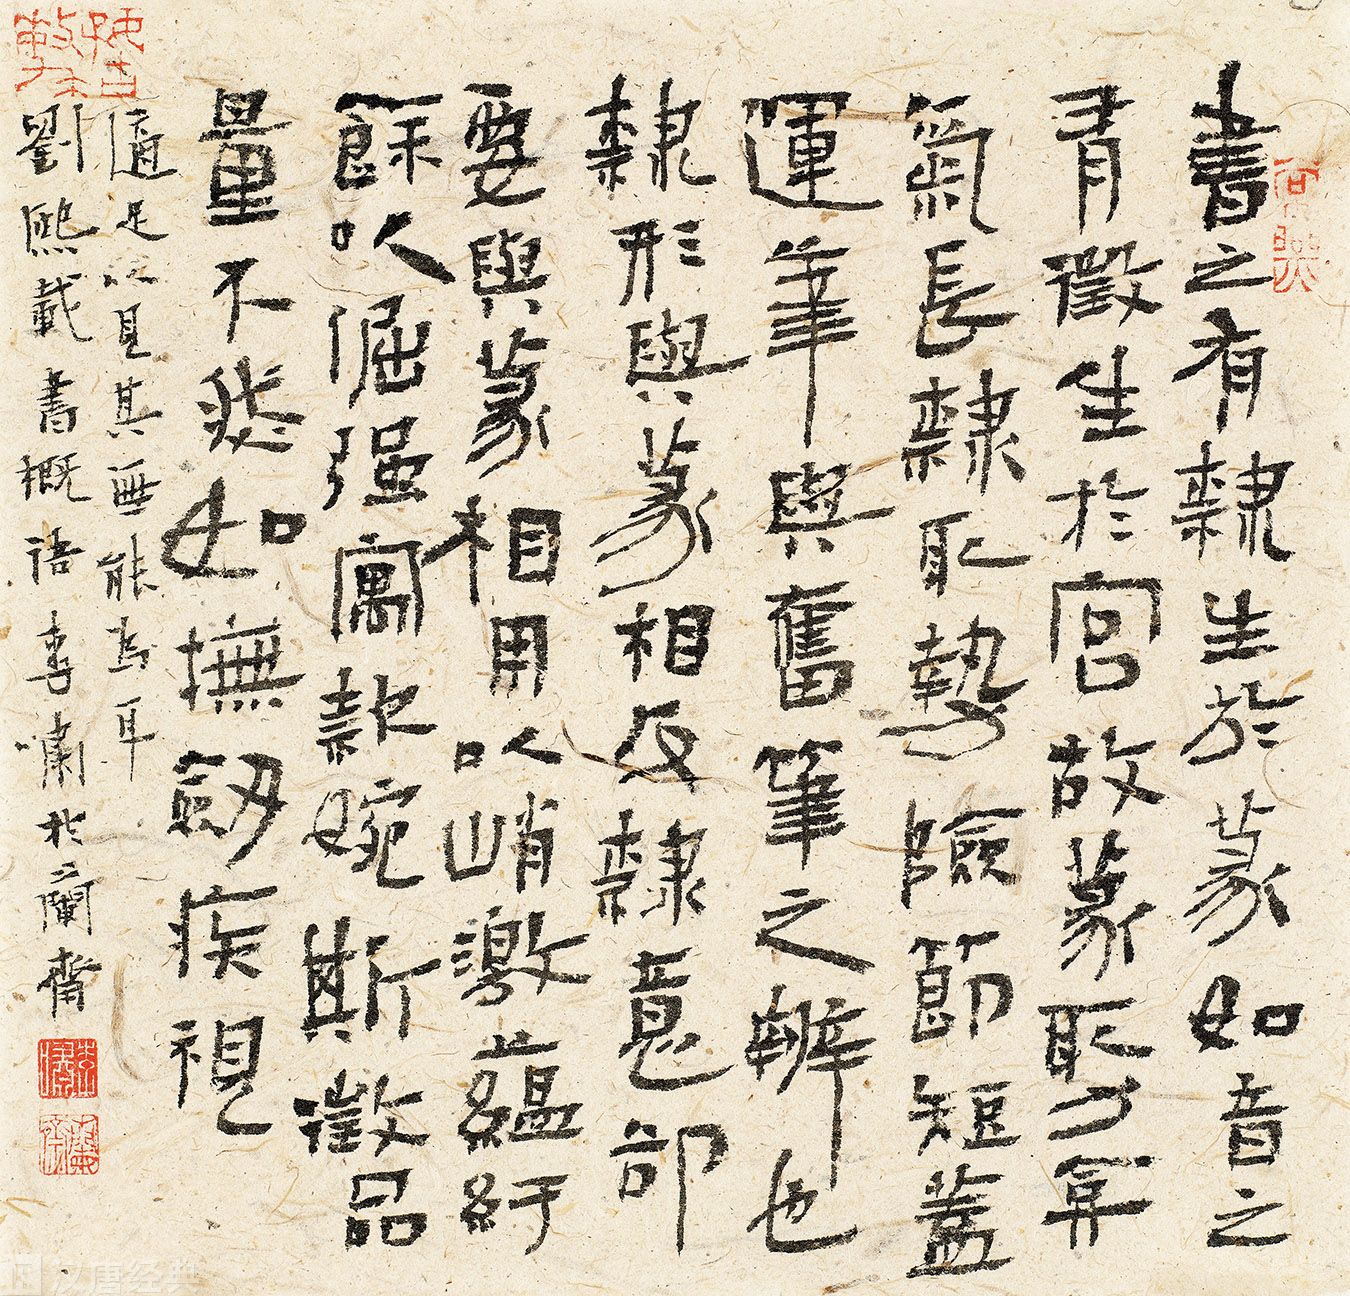 書之有隸生於篆如音之
有徵生於宮故篆取力弇
氣長隸取勢險節短蓋
運筆與奮筆之辨也
隸形與篆相反隸意卻
要與篆相用以峭激蘊紆
餘以倔强寓款婉斯徵品
量不然如撫劍疾視
適足以見其無能為耳
劉熙載書概語李嘯於蘭齋
汉唐经典